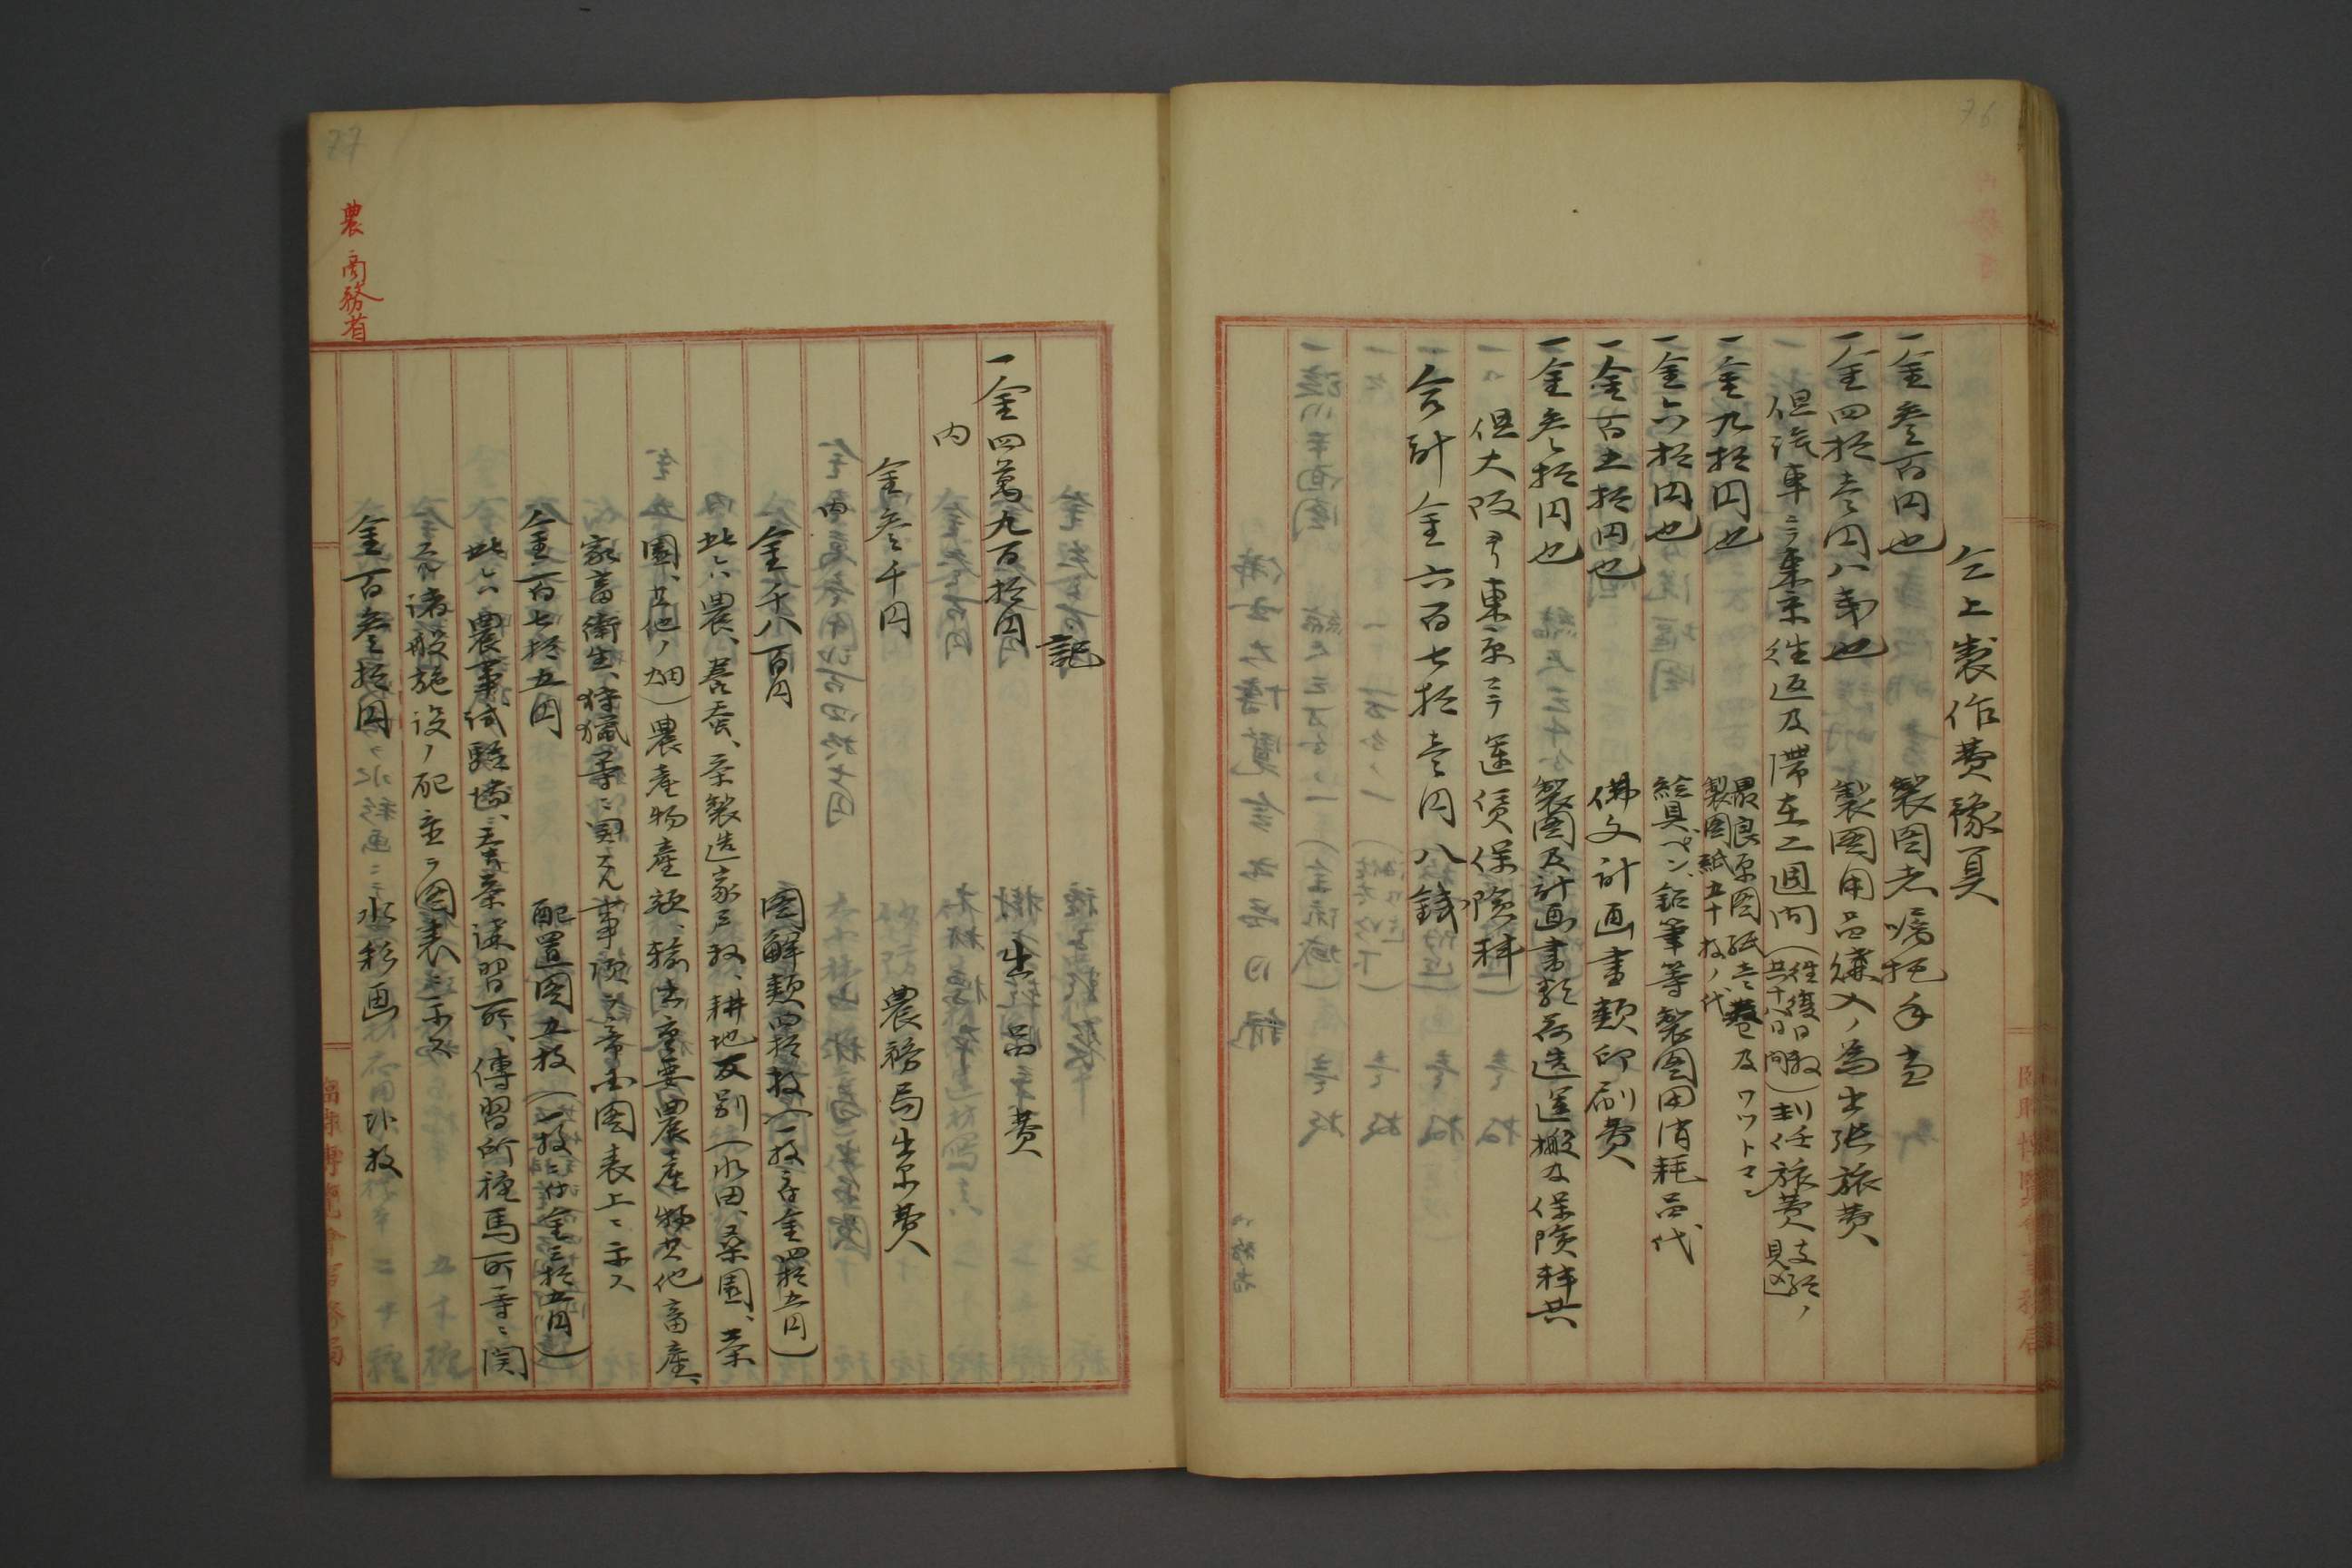 76
仝上製作費豫算
一金叁百円也 製図者嘱托手当
一金四拾壱円八銭也 製図用品購入ノ為出張旅費
但汽車ニテ東京往返及滞在二週間(往復日数共十八日間)判任旅費支給ノ見込
一金九拾円也 最良原図紙壱巻及ワットマン
製図紙五十枚ノ代
一金六拾円也 絵具ペン、鉛筆等製図用消耗品代
一金百五拾円也 佛文計画書類印刷費
一金叁拾円也 製図及計画書類荷造運搬及保険料共
但大阪ヨリ東京マテ運賃保険料
一合計金六百七拾壱円八銭
77
農商務省
記
一金四萬九百拾円 出品費
内
金叁千円 農務局出品費
内
金千八百円 図解類四拾枚(一枚ニ付金四拾五円)
此ハ農、養蚕、茶製造家戸数、耕地反別(水田、桑園、茶
園、其他ノ畑)農産物産額、輸出重要農産物其他畜産、
家畜衛生、狩猟等ニ関スル事項ヲ帝国図表上ニ示ス
金百七拾五円 配置図五枚(一枚ニ付金三拾五円)
此ハ農事試験場、茶講習所、傳習所種馬所等ニ関
スル諸般施設ノ配置ヲ図表ニ示ス
金百叁拾円 水彩画 弐枚
臨時博覧會事務局